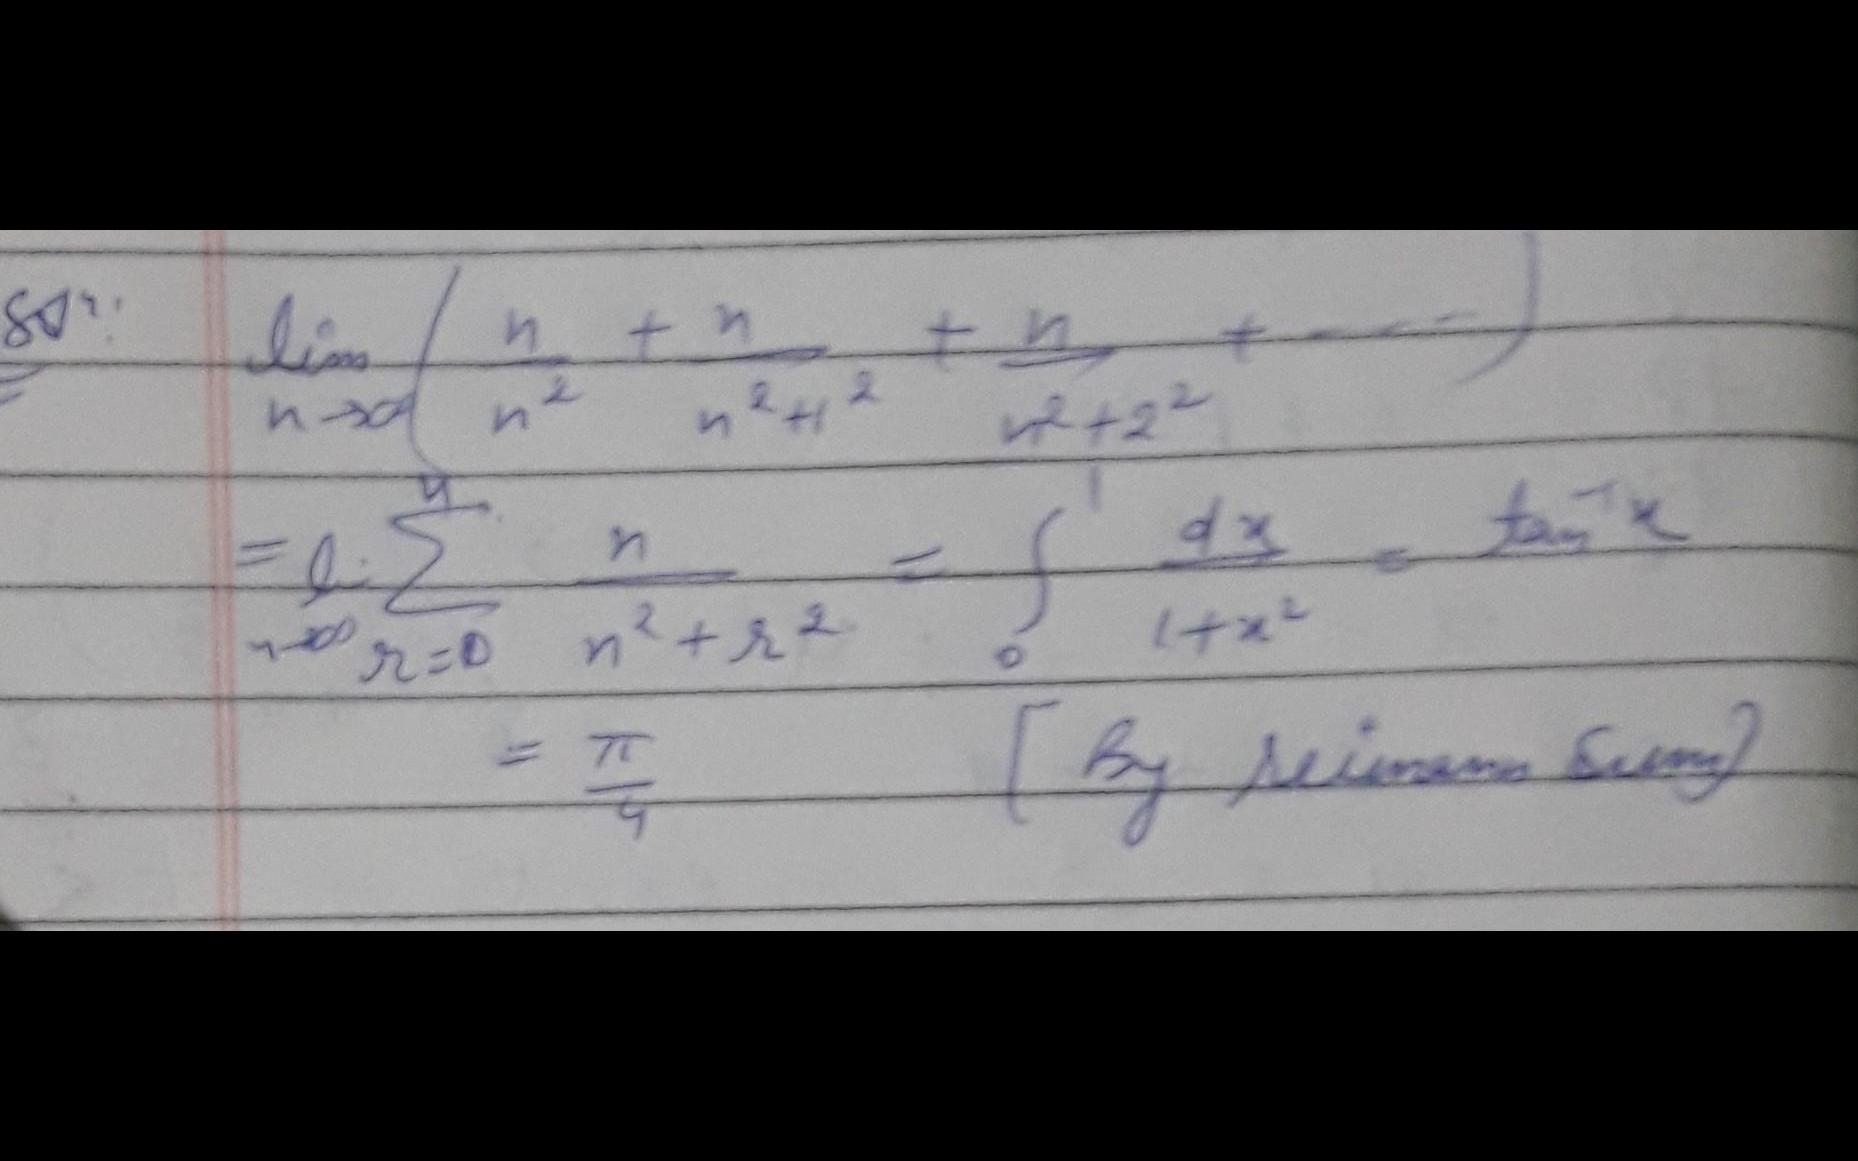 Solⁿ: lim n→∞ ( n/n² + n/(n²+1²) + n/(n²+2²) + ---- )
= li n→∞ Σ r=0 n n/(n²+r²) = ∫₀¹ dx/(1+x²) = tan⁻¹x
= π/4 [By reimann Sum]